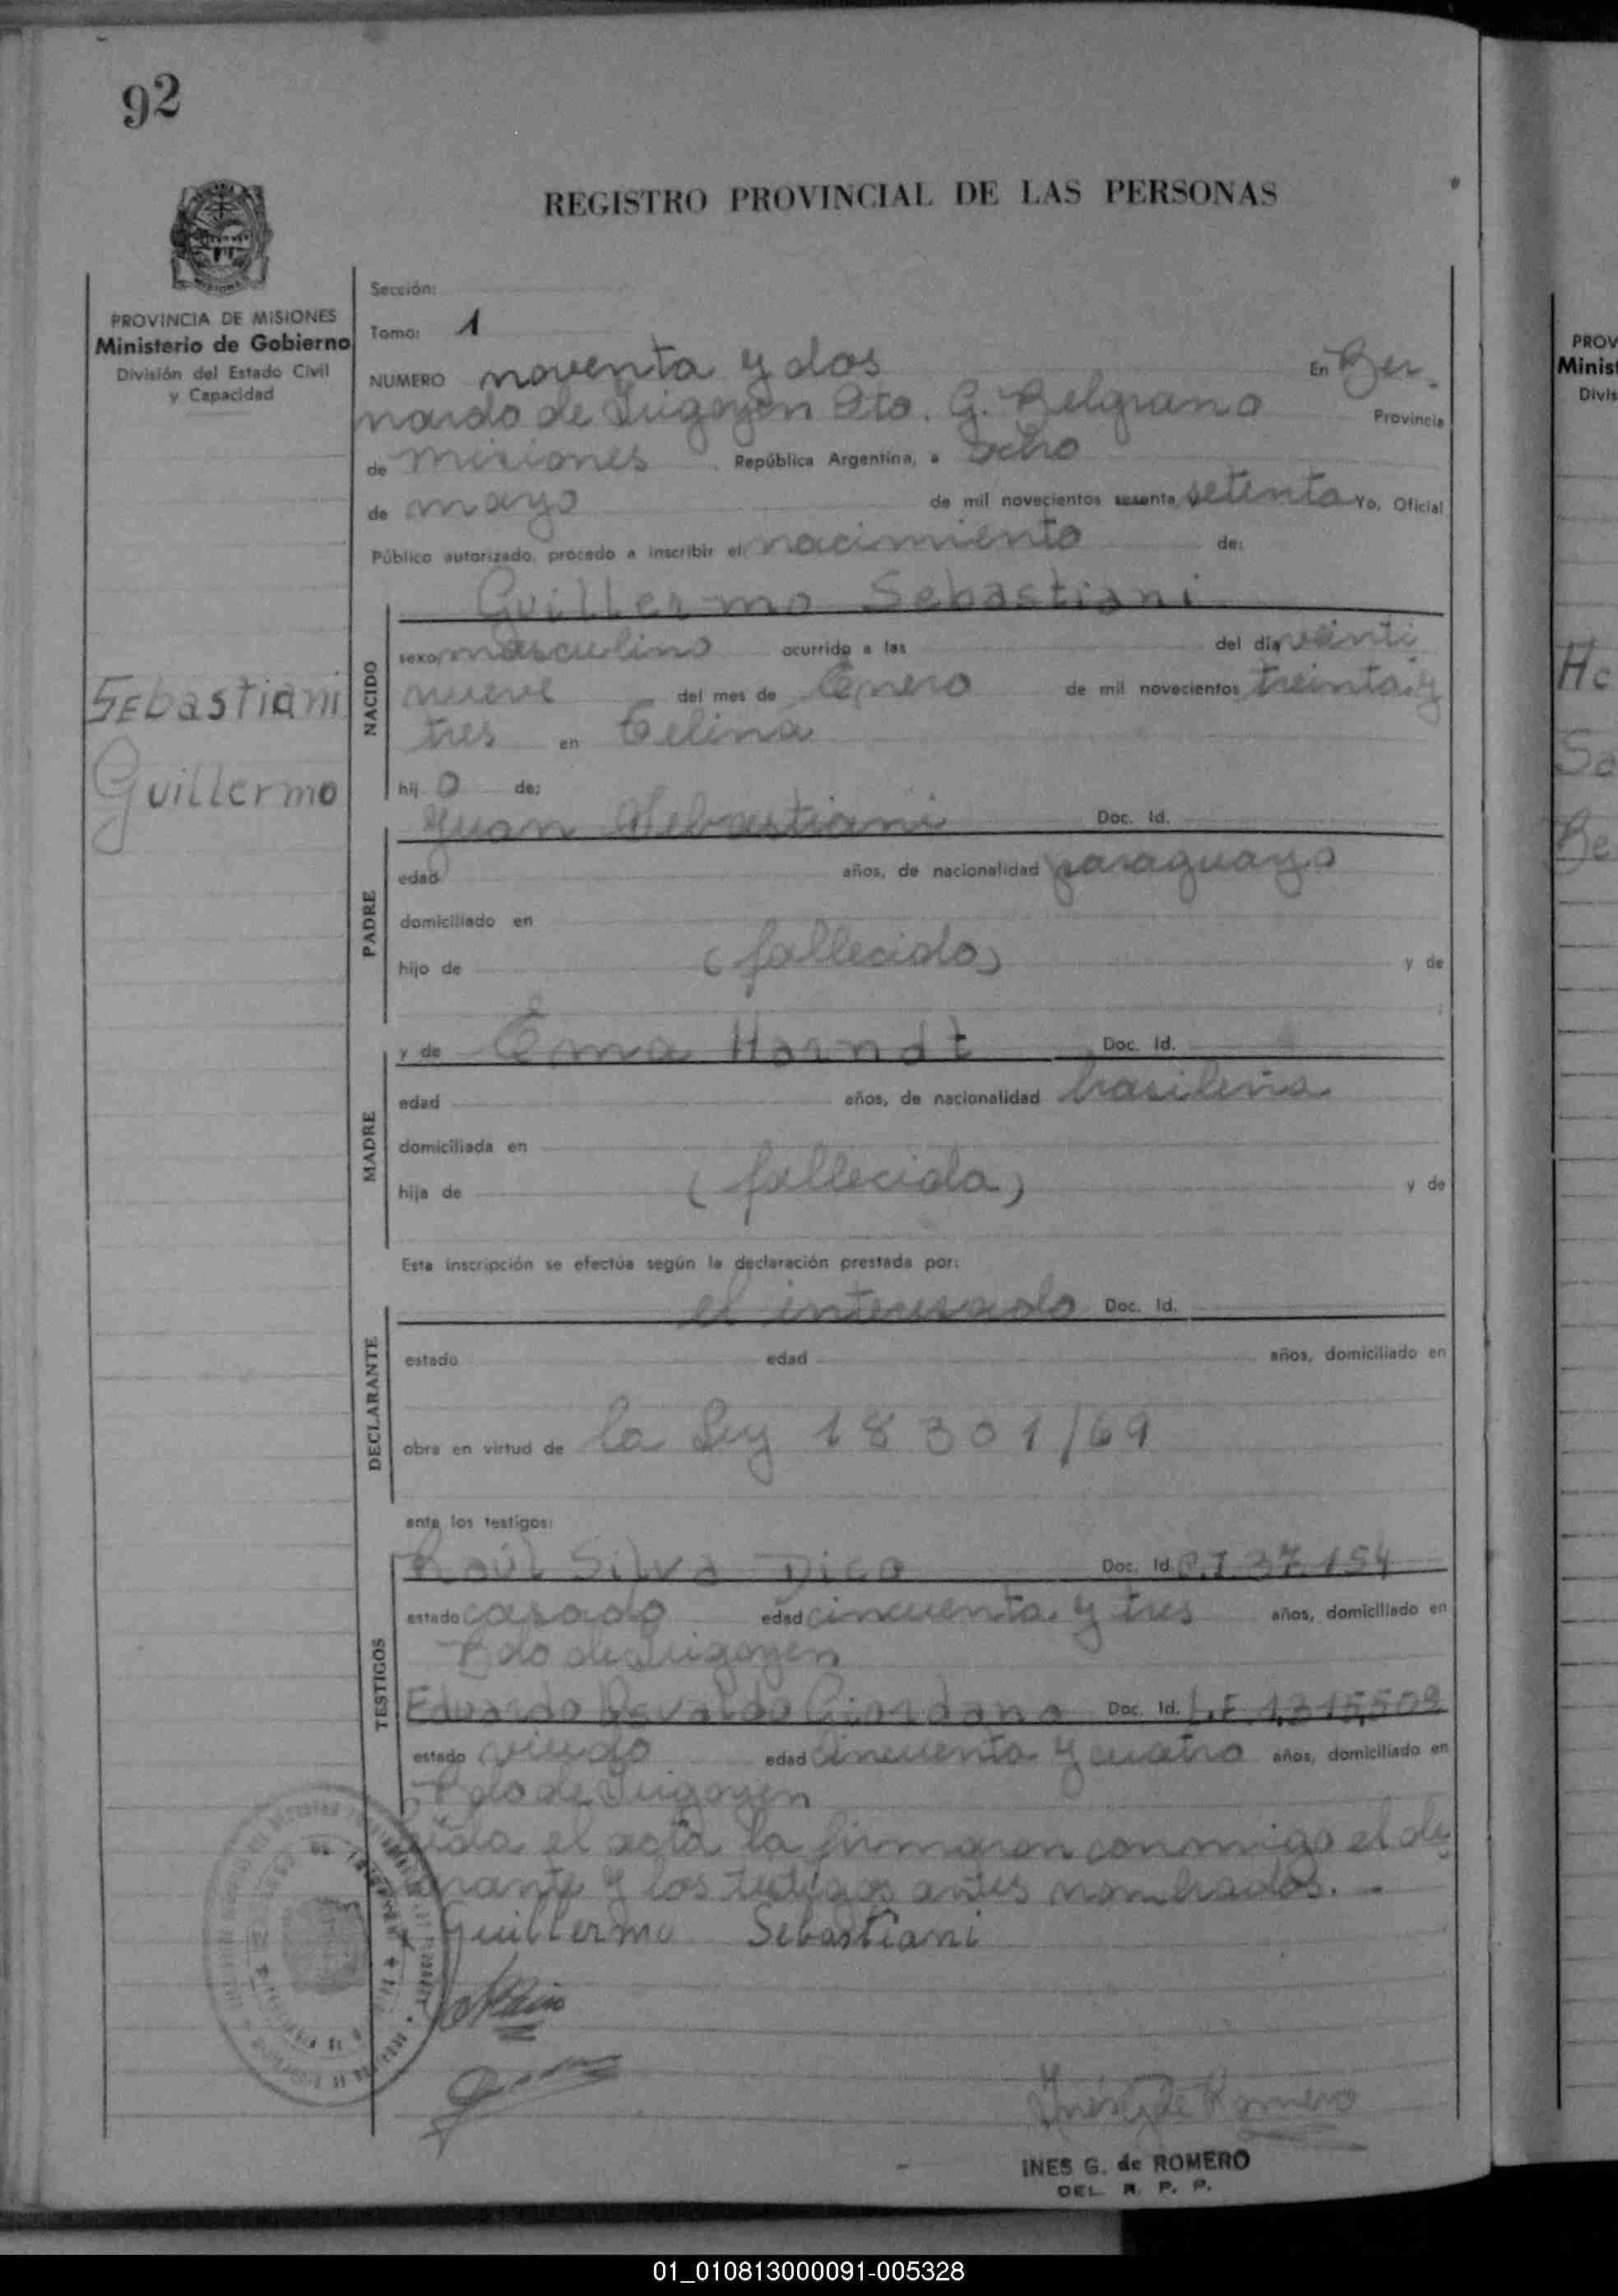 92
REGISTRO PROVINCIAL DE LAS PERSONAS
PROVINCIA DE MISIONES
Ministerio de Gobierno
División del Estado Civil
y Capacidad
Sección:
Tomo: 1
NUMERO noventa y dos En Ber-
nardo de Irigoyen Dto. G. Belgrano Provincia
de misiones República Argentina, a ocho
de mayo de mil novecientos sesenta setenta Yo, Oficial
Público autorizado, procedo a inscribir el nacimiento de:
Guillermo Sebastiani
Sebastiani
Guillermo
NACIDO
sexo masculino ocurrido a las del día veinti
nueve del mes de Enero de mil novecientos treinta y
tres en Celina
hij o de:
PADRE
Juan Sebastiani Doc. Id.
edad años, de nacionalidad paraguayo
domiciliado en
hijo de (fallecido) y de
MADRE
y de Ema Horndt Doc. Id.
edad años, de nacionalidad brasileña
domiciliada en
hija de (fallecida) y de
Esta inscripción se efectúa según la declaración prestada por:
DECLARANTE
el interesado Doc. Id.
estado edad años, domiciliado en
obra en virtud de la Ley 18301/69
ante los testigos:
TESTIGOS
Raúl Silva Dico Doc. Id. C.I 37.154
estado casado edad cincuenta y tres años, domiciliado en
Bdo de Irigoyen
Eduardo Osvaldo Giordano Doc. Id. L.E. 1.315.509
estado viudo edad cincuenta y cuatro años, domiciliado en
Bdo de Irigoyen
Leída el acta la firmaron conmigo el de
larante y los testigos antes nombrados. -
Guillermo Sebastiani
Inés G de Romero
INES G. de ROMERO
DEL. R. P. P.
PROV
Minist
Divis
01_010813000091-005328